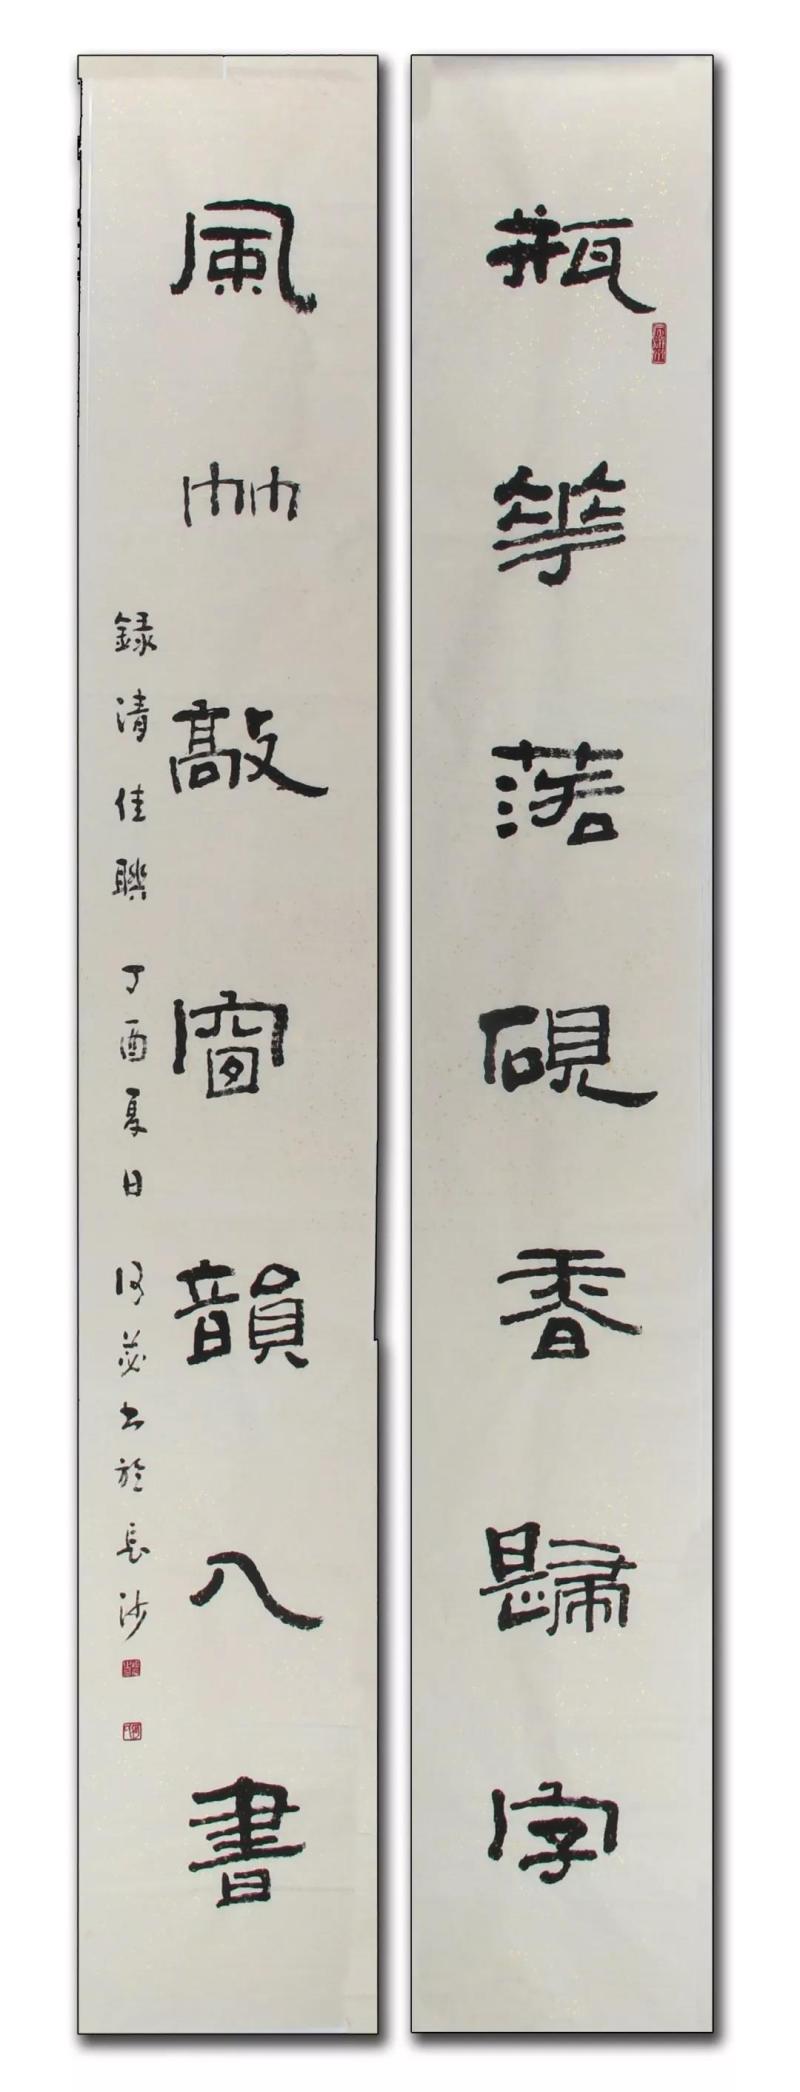 瓶花落硯香歸字
風竹敲窗韻入書
錄清佳聯 丁酉夏日 何苾書於長沙